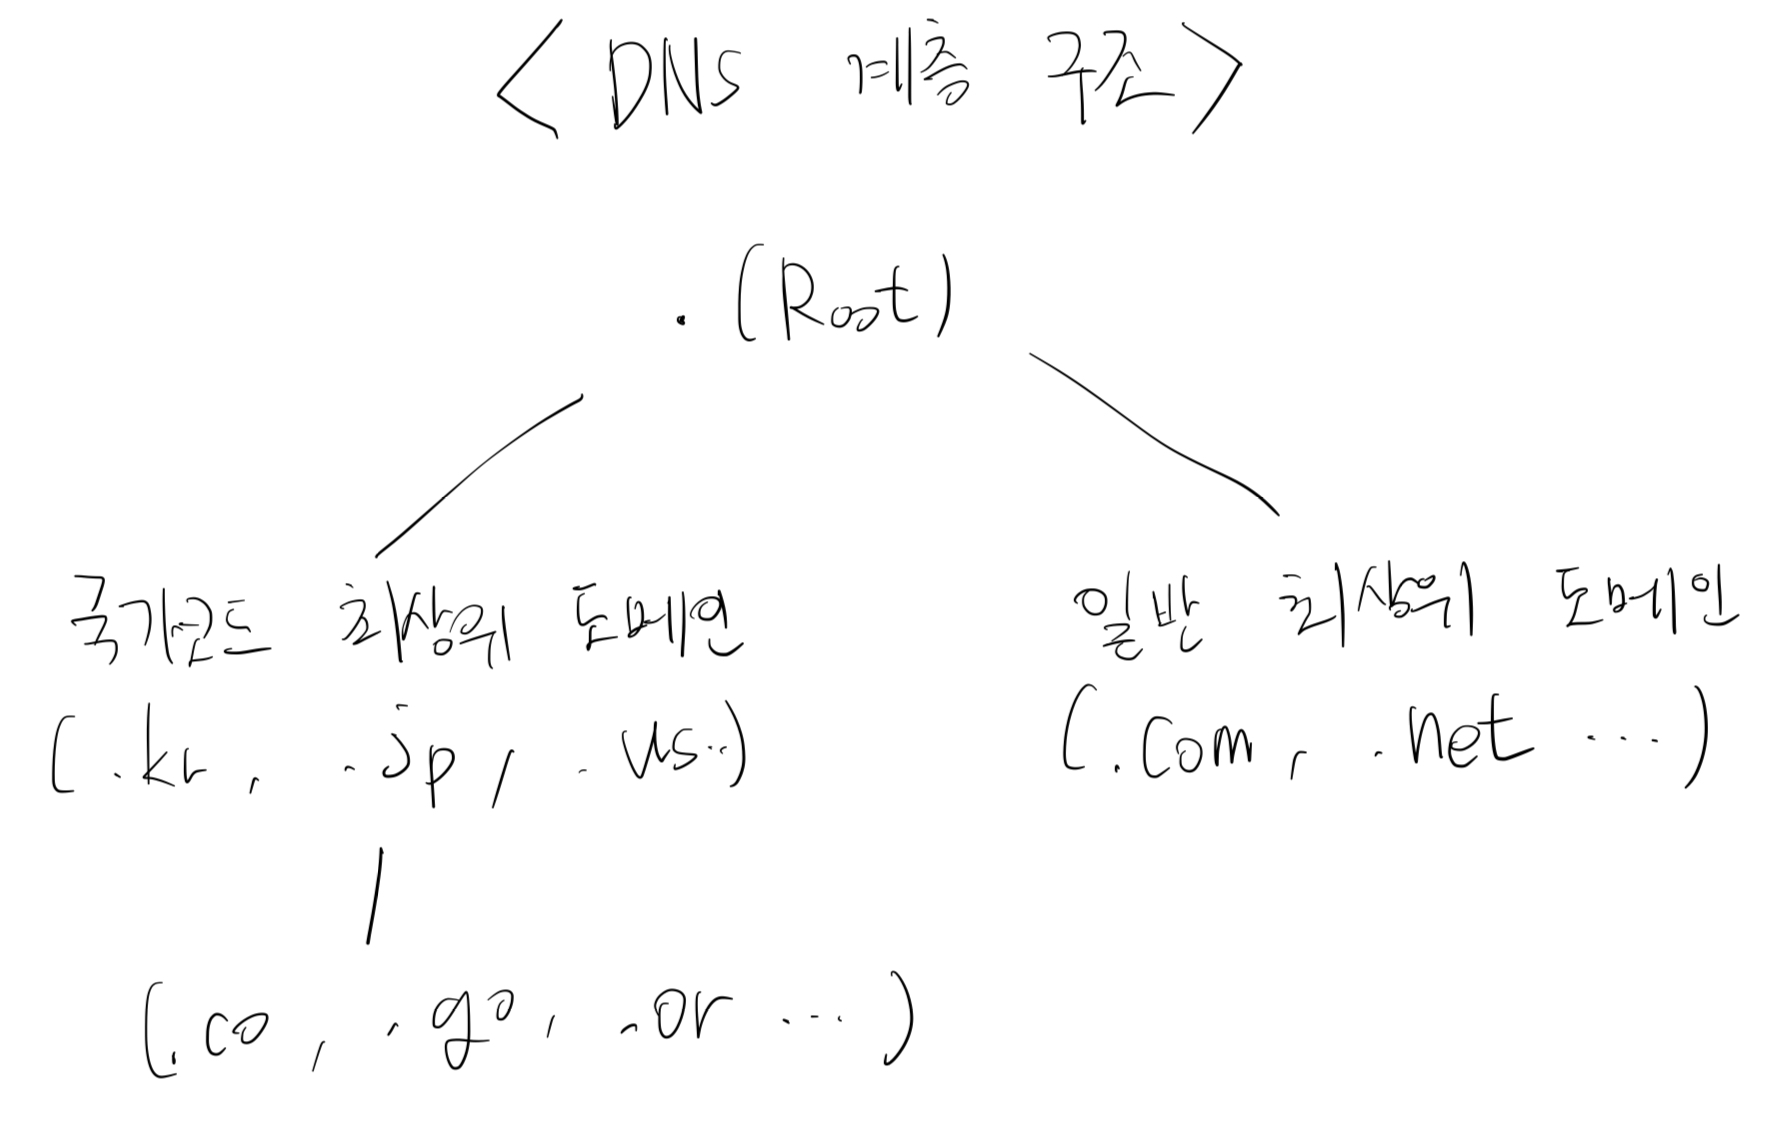 <DNS 계층 구조>
. (Root)
국가코드 최상위 도메인
(.kr, .jp, .us..)
일반 최상위 도메인
(.com, .net ...)
(.co, .go, .or ...)